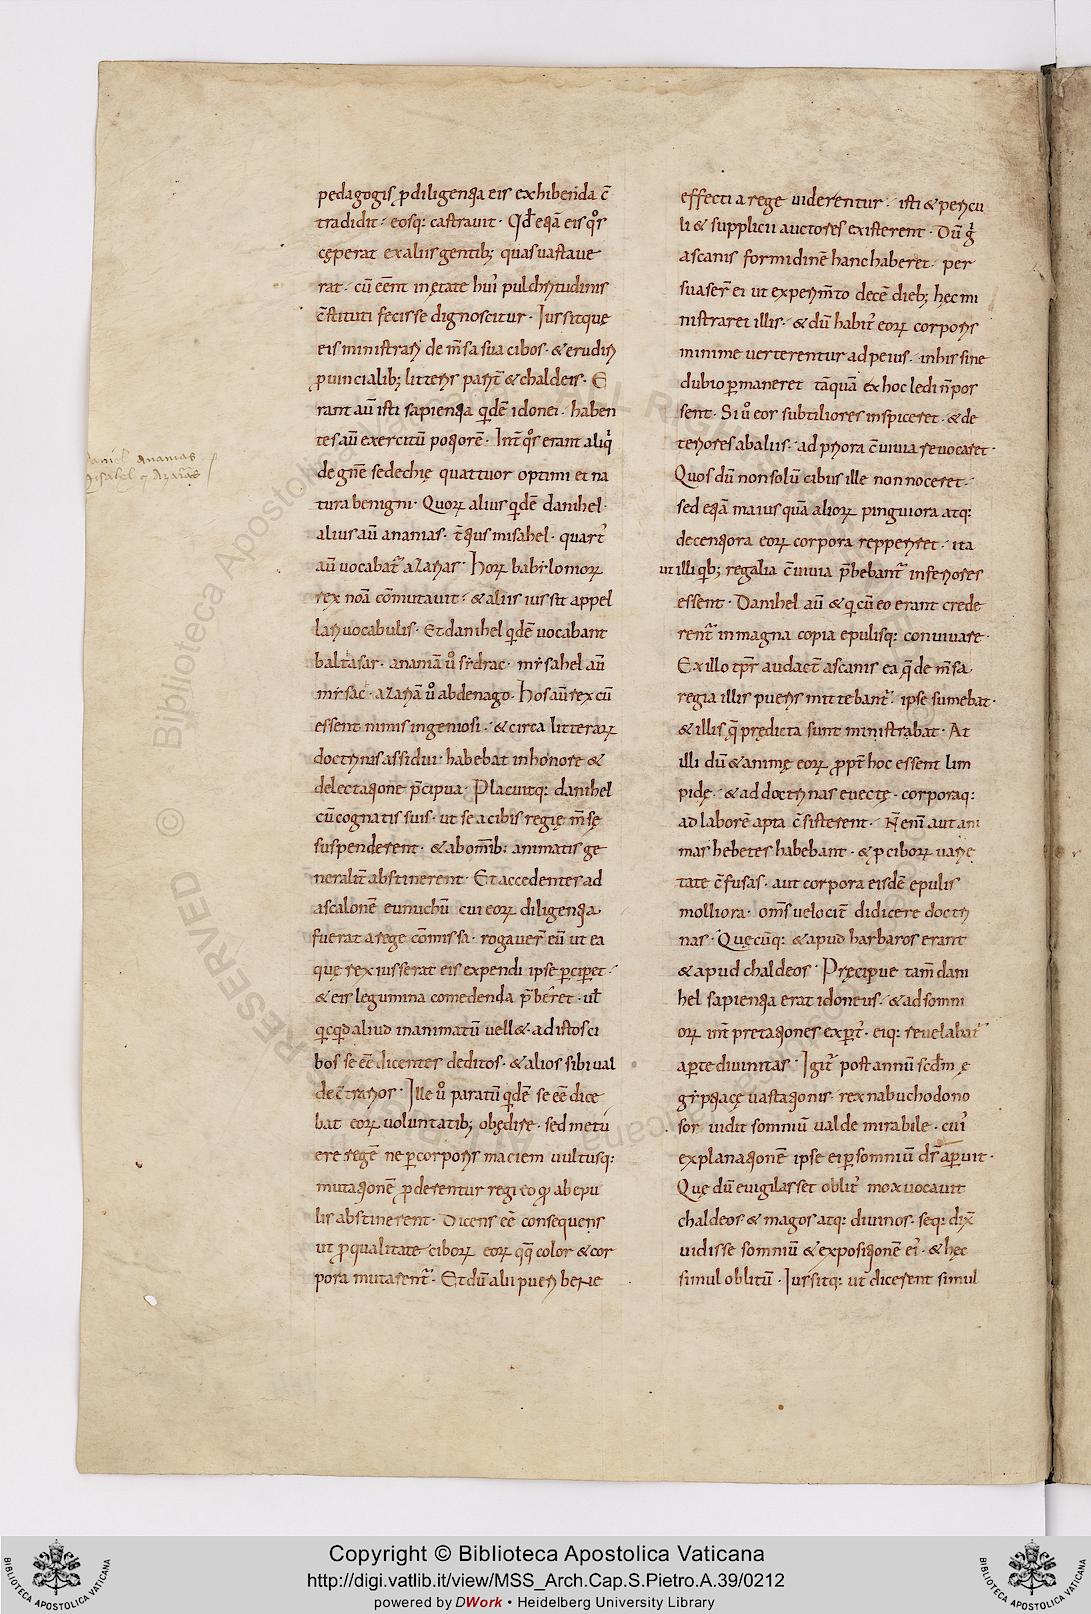 pedagogis ꝑ diligentia eis exhibenda c̄
tradidit · eosq; castrauit · Qd̄ etiā eis q͛os
cęperat ex aliis gentib; quas uastaue
rat · cū eēnt in ętate hui᾽ pulchritudinis
c̄stituti fecisse dignoscitur · Iussitque
eis ministrari de m̄sa sua cibos · & erudiri
ꝓuincialib; litteris parit̄ & chaldeis · E
rant aū isti sapientia qidē idonei · haben
tes aū exercitū potiorē · Int̄ q͛os erant aliq͛
de gn̄e sedechię quattuor optimi et na
tura benigni · Quoꝝ alius qidē danihel ·
alius aū ananias · t̄tius misahel · quart᾽
aū uocabat᾽ azarias · Hoꝝ babyloniorꝝ
rex noā cōmutauit · & aliis iussit appel
lari uocabulis · Et danihel qidē uocabant
baltasar · ananiā u͛o sydrac · mysahel aū
mysac · azariā u͛o abdenago · Hos aū rex cū
essent nimis ingeniosi · & circa litterarꝝ
doctrinis assidui · habebat in honore &
delectatione p̄cipua · Placuitq; danihel
cū cognatis suis · ut se a cibis regię m̄sę
suspenderent · & ab om̄ib; animatis ge
neralit̄ abstinerent · Et accedentes ad
ascalonē eunuchū cui eoꝝ diligentia
fuerat a rege cōmissa · rogauer̄ eū ut ea
quę rex iusserat eis expendi ipse ꝑciꝑet ·
& eis legumina comedenda p̄beret · ul̄
qicqid aliud inanimatū uell& · ad istos ci
bos se eē dicentes deditos · & alios sibi ual
de c̄trarios · Ille u͛o paratū qidē se eē dice
bat eoꝝ uoluntatib; obędire · sed metu
ere regē ne ꝑ corporis maciem uultusq;
mutationē ꝓderentur regi eo qd ab epu
lis abstinerent · Dicens eē consequens
ut ꝓ qualitate ciboꝝ eoꝝ qq color & cor
pora mutarent᾽ · Et dū alii pueri bene
effecti a rege uiderentur · isti & pericu
li & supplicii auctores existerent · Dū g͛
ascanis formidinē hanc haberet · per
suaser̄ ei ut experim̄to decē dieb; hęc mi
nistraret illis · & dū habit᾽ eoꝝ corporis
minime uerterentur ad peius · in his sine
dubio ꝑmaneret tāquā ex hoc ledi n̄ pos
sent · Si u͛o eos subtiliores inspiceret · & de
teriores ab aliis · ad priora c̄uiuia reuocaret ·
Quos dū non solū cibus ille non noceret ·
sed etiā maius quā alioꝝ pinguiora atq;
decentiora eoꝝ corpora repperiret · ita
ut illi qib; regalia c̄uiuia p̄bebant᾽ inferiores
essent · Danihel aū & qi cū eo erant crede
rent᾽ in magna copia epulisq; conuiuare ·
Ex illo tꝑr audact̄ ascanis ea q̄ de m̄sa
regia illis pueris mittebant᾽ · ipse sumebat ·
& illis q̄ prędicta sunt ministrabat · At
illi dū & animę eoꝝ ꝓpt̄ hoc essent lim
pidę · & ad doctrinas euectę · corporaq;
ad laborē apta c̄sisterent · N̄ eni᾽ aut ani
mas hebetes habebant · & ꝑ ciboꝝ uarie
tate c̄fusas · aut corpora eisdē epulis
molliora · om̄s uelocit̄ didicere doctri
nas · Quęcūq; & apud barbaros erant
& apud chaldeos · Pręcipue tam̄ dani
hel sapientia erat idoneus · & ad somni
oꝝ int̄pretationes exꝑt᾽ · eiq; reuelabat᾽
aꝑte diuinitas · Igit᾽ post annū scd̄m ę
gyptiacę uastationis · rex nabuchodono
sor uidit somniū ualde mirabile · cui᾽
explanationē ipse ei ꝑ somniū dr̄ aꝑuit ·
Quę dū euigilasset oblit᾽ mox uocauit
chaldeos & magos atq; diuinos · seq; dix̄
uidisse somniū & expositionē ei᾽ · & hęc
simul oblitū · Iussitq; ut dicerent simul
Copyright © Biblioteca Apostolica Vaticana
http://digi.vatlib.it/view/MSS_Arch.Cap.S.Pietro.A.39/0212
powered by DWork • Heidelberg University Library